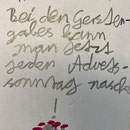 Bei den Gersten-
gabes kann
man jetz
jeden Advess-
sonntag nasch
!